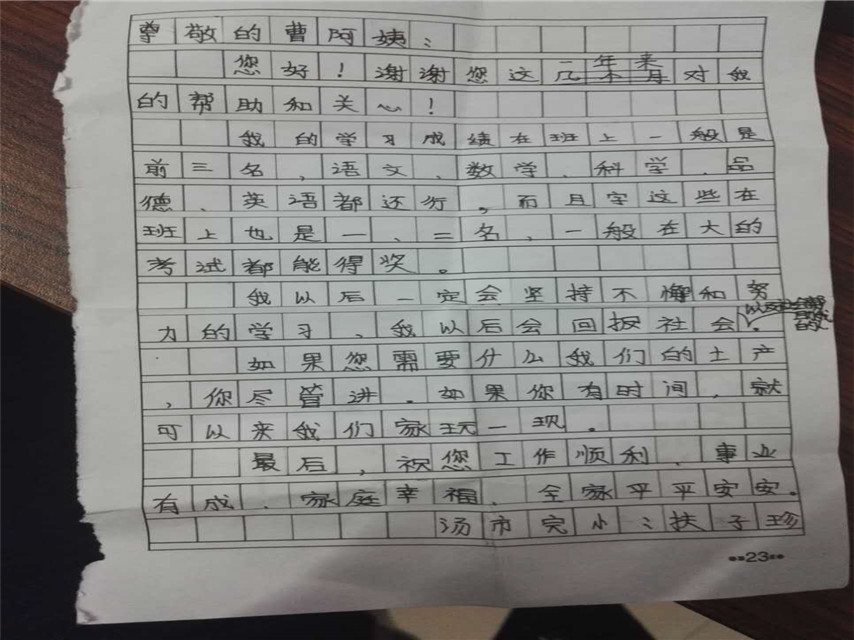 尊敬的曹阿姨：
您好！谢谢您这一年来对我
的帮助和关心！
我的学习成绩在班上一般是
前三名，语文、数学、科学、品
德、英语都还行，而且字这些在
班上也是一、二名，一般在大的
考试都能得奖。
我以后一定会坚持不懈和努
力的学习，我以后会回报社会。
如果您需要什么我们的土产
，你尽管讲。如果你有时间，就
可以来我们家玩一玩。
最后，祝您工作顺利、事业
有成、家庭幸福、全家平平安安。
汤市完小：扶子珍
23